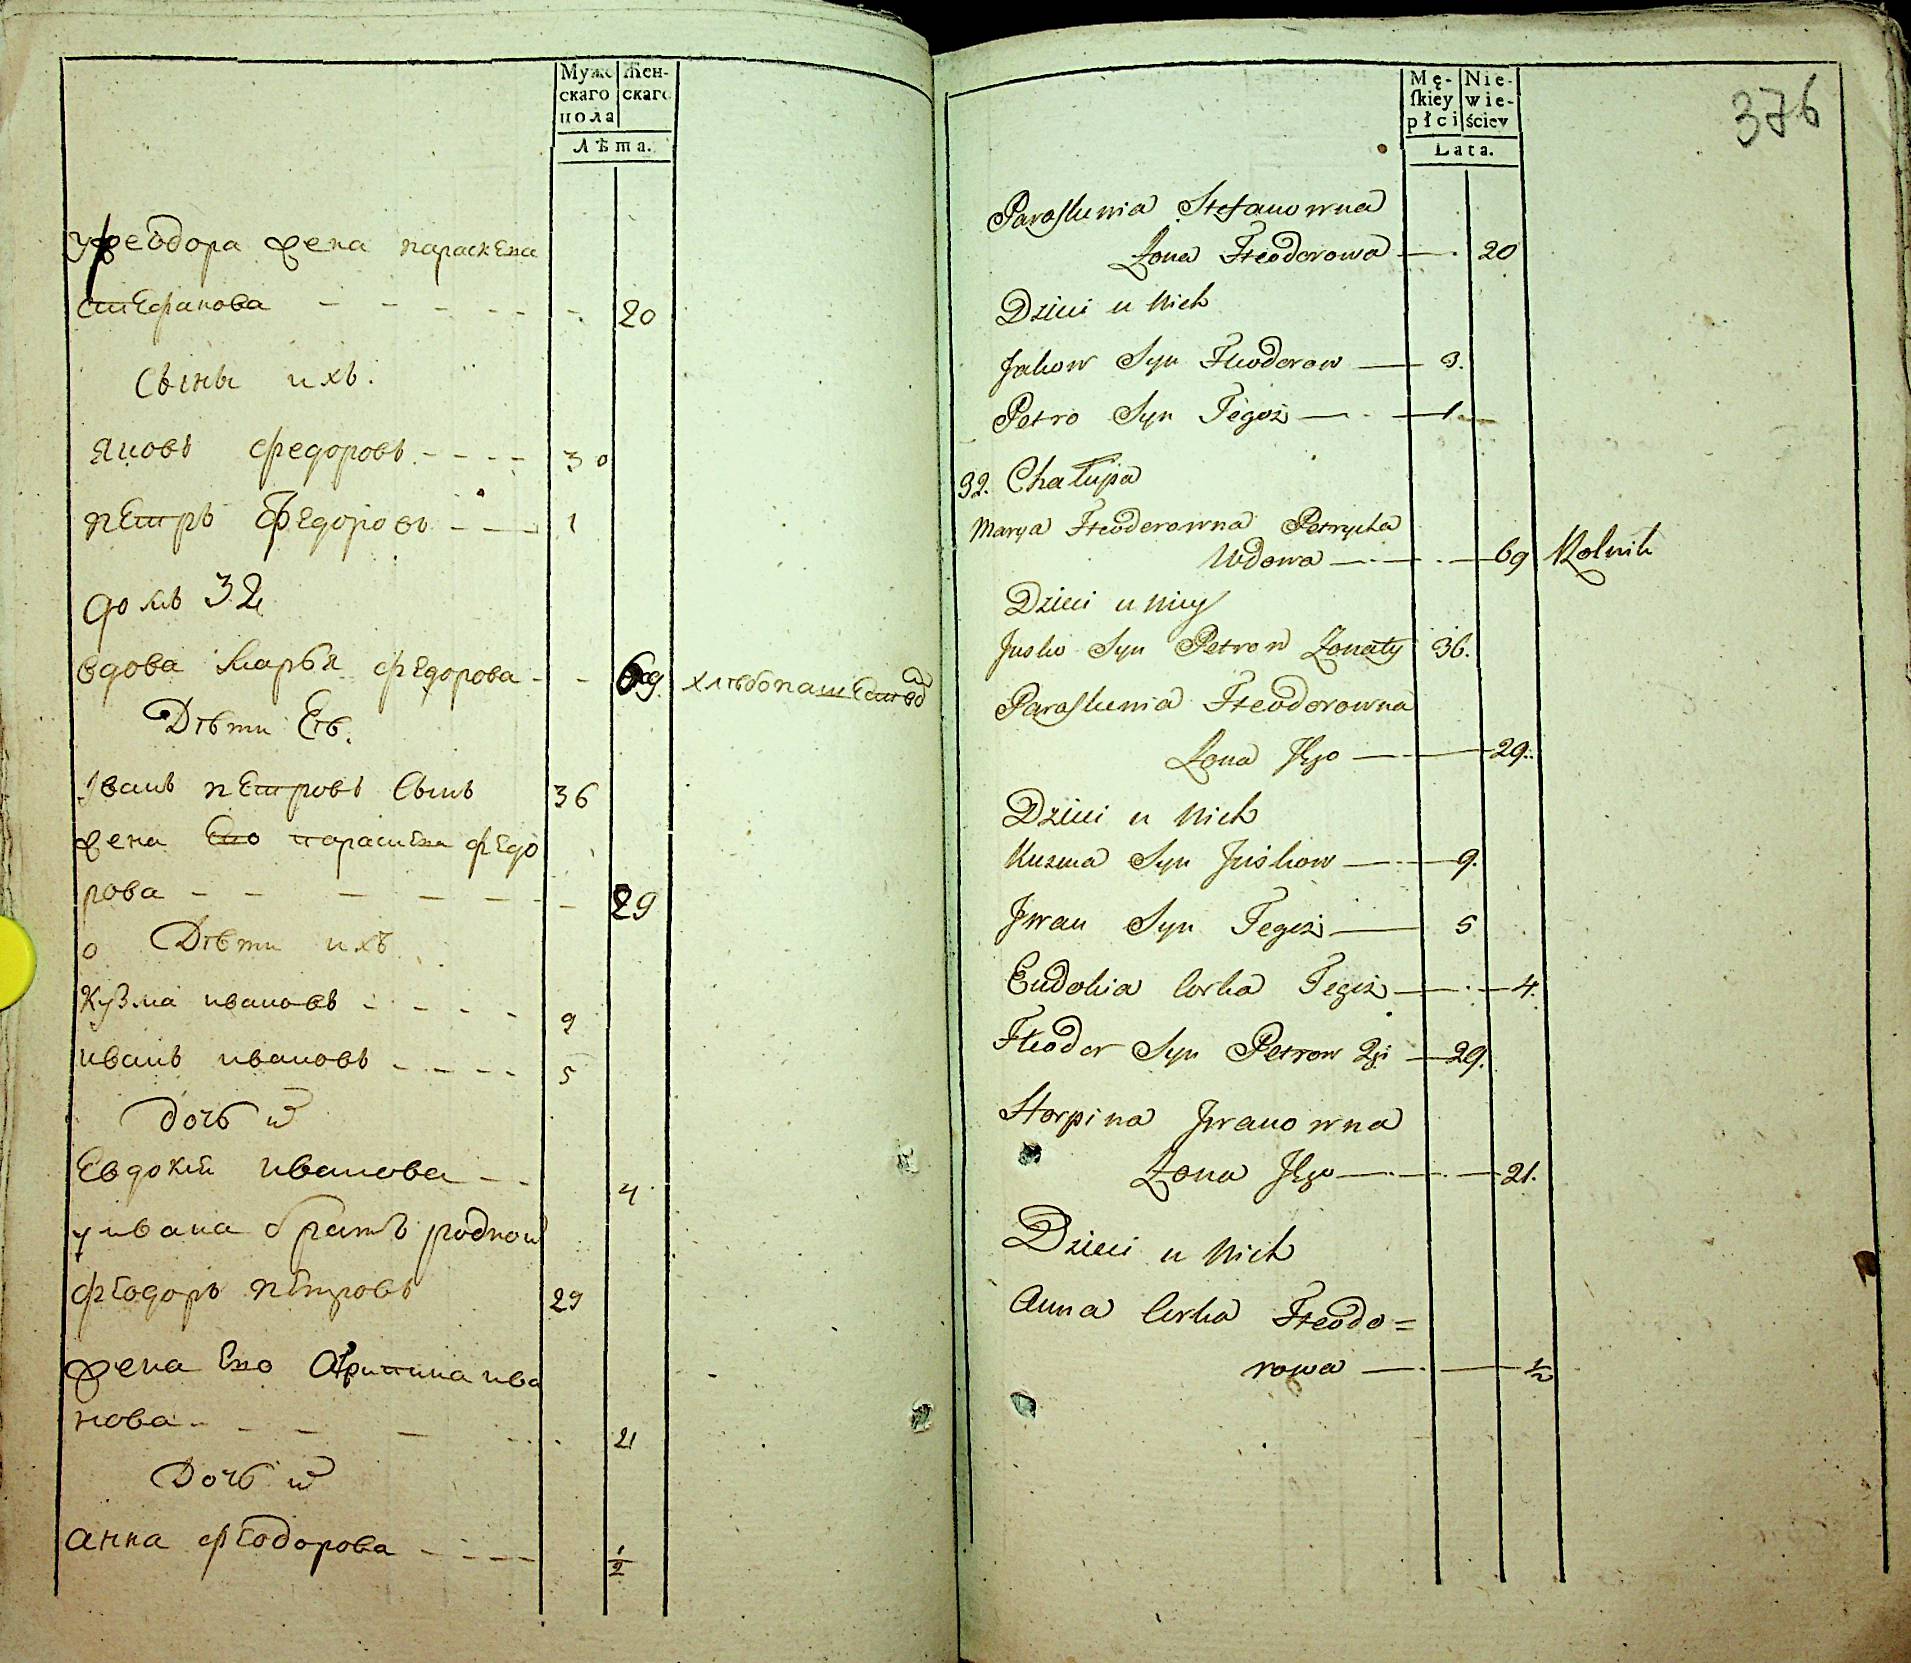 Муже
скаго
пола
Жен-
скаго
Лѣта.
уфеодора жена параскева
стефанова - - - - - - 20
Сыны ихъ.
яковъ федоровъ - - - - 3
петръ федоровъ - - - 1
домъ 32
вдова марья федорова - - 69 хлѣбопашество
Дѣти Еѣ.
Iванъ петровъ сынъ 36
жена Его параскева федо
рова - - - - - - 29
Дѣти ихъ
Кузма ивановъ - - - - 9
иванъ ивановъ - - - - 5
дочь
Евдокия иванова - - 4
у ивана братъ родной
феодоръ петровъ 29
жена Его Агрипина ива
нова - - - - - - 21
Дочь
анна феодорова - - - - 1/2
Mę-
ſkiey
płci
Nie-
wie-
ściey
Lata.
376
Paraskewia Stefanowna
Zona Fteodorowa — 20
Dzieci u Nich
Jakow Syn Fteodorow — 3.
Petro Syn Tegoż — 1
32. Chałupa
Marya Fteoderowna Petrycha
Wdowa — 69 Rolnik
Dzieci u Niey
Jusko Syn Petrow Zonaty 36.
Paraskewia Fteodorowna
Zona Jego — 29.
Dzieci u Nich
Kuzma Syn Juśkow — 9.
Jwan Syn Tegoż — 5
Eudokia Corka Tegoż — 4.
Fteodor Syn Petrow 2gi — 29.
Horpina Jwanowna
Zona Jego — 21.
Dzieci u Nich
Anna Corka Fteodo=
rowa — 1/2